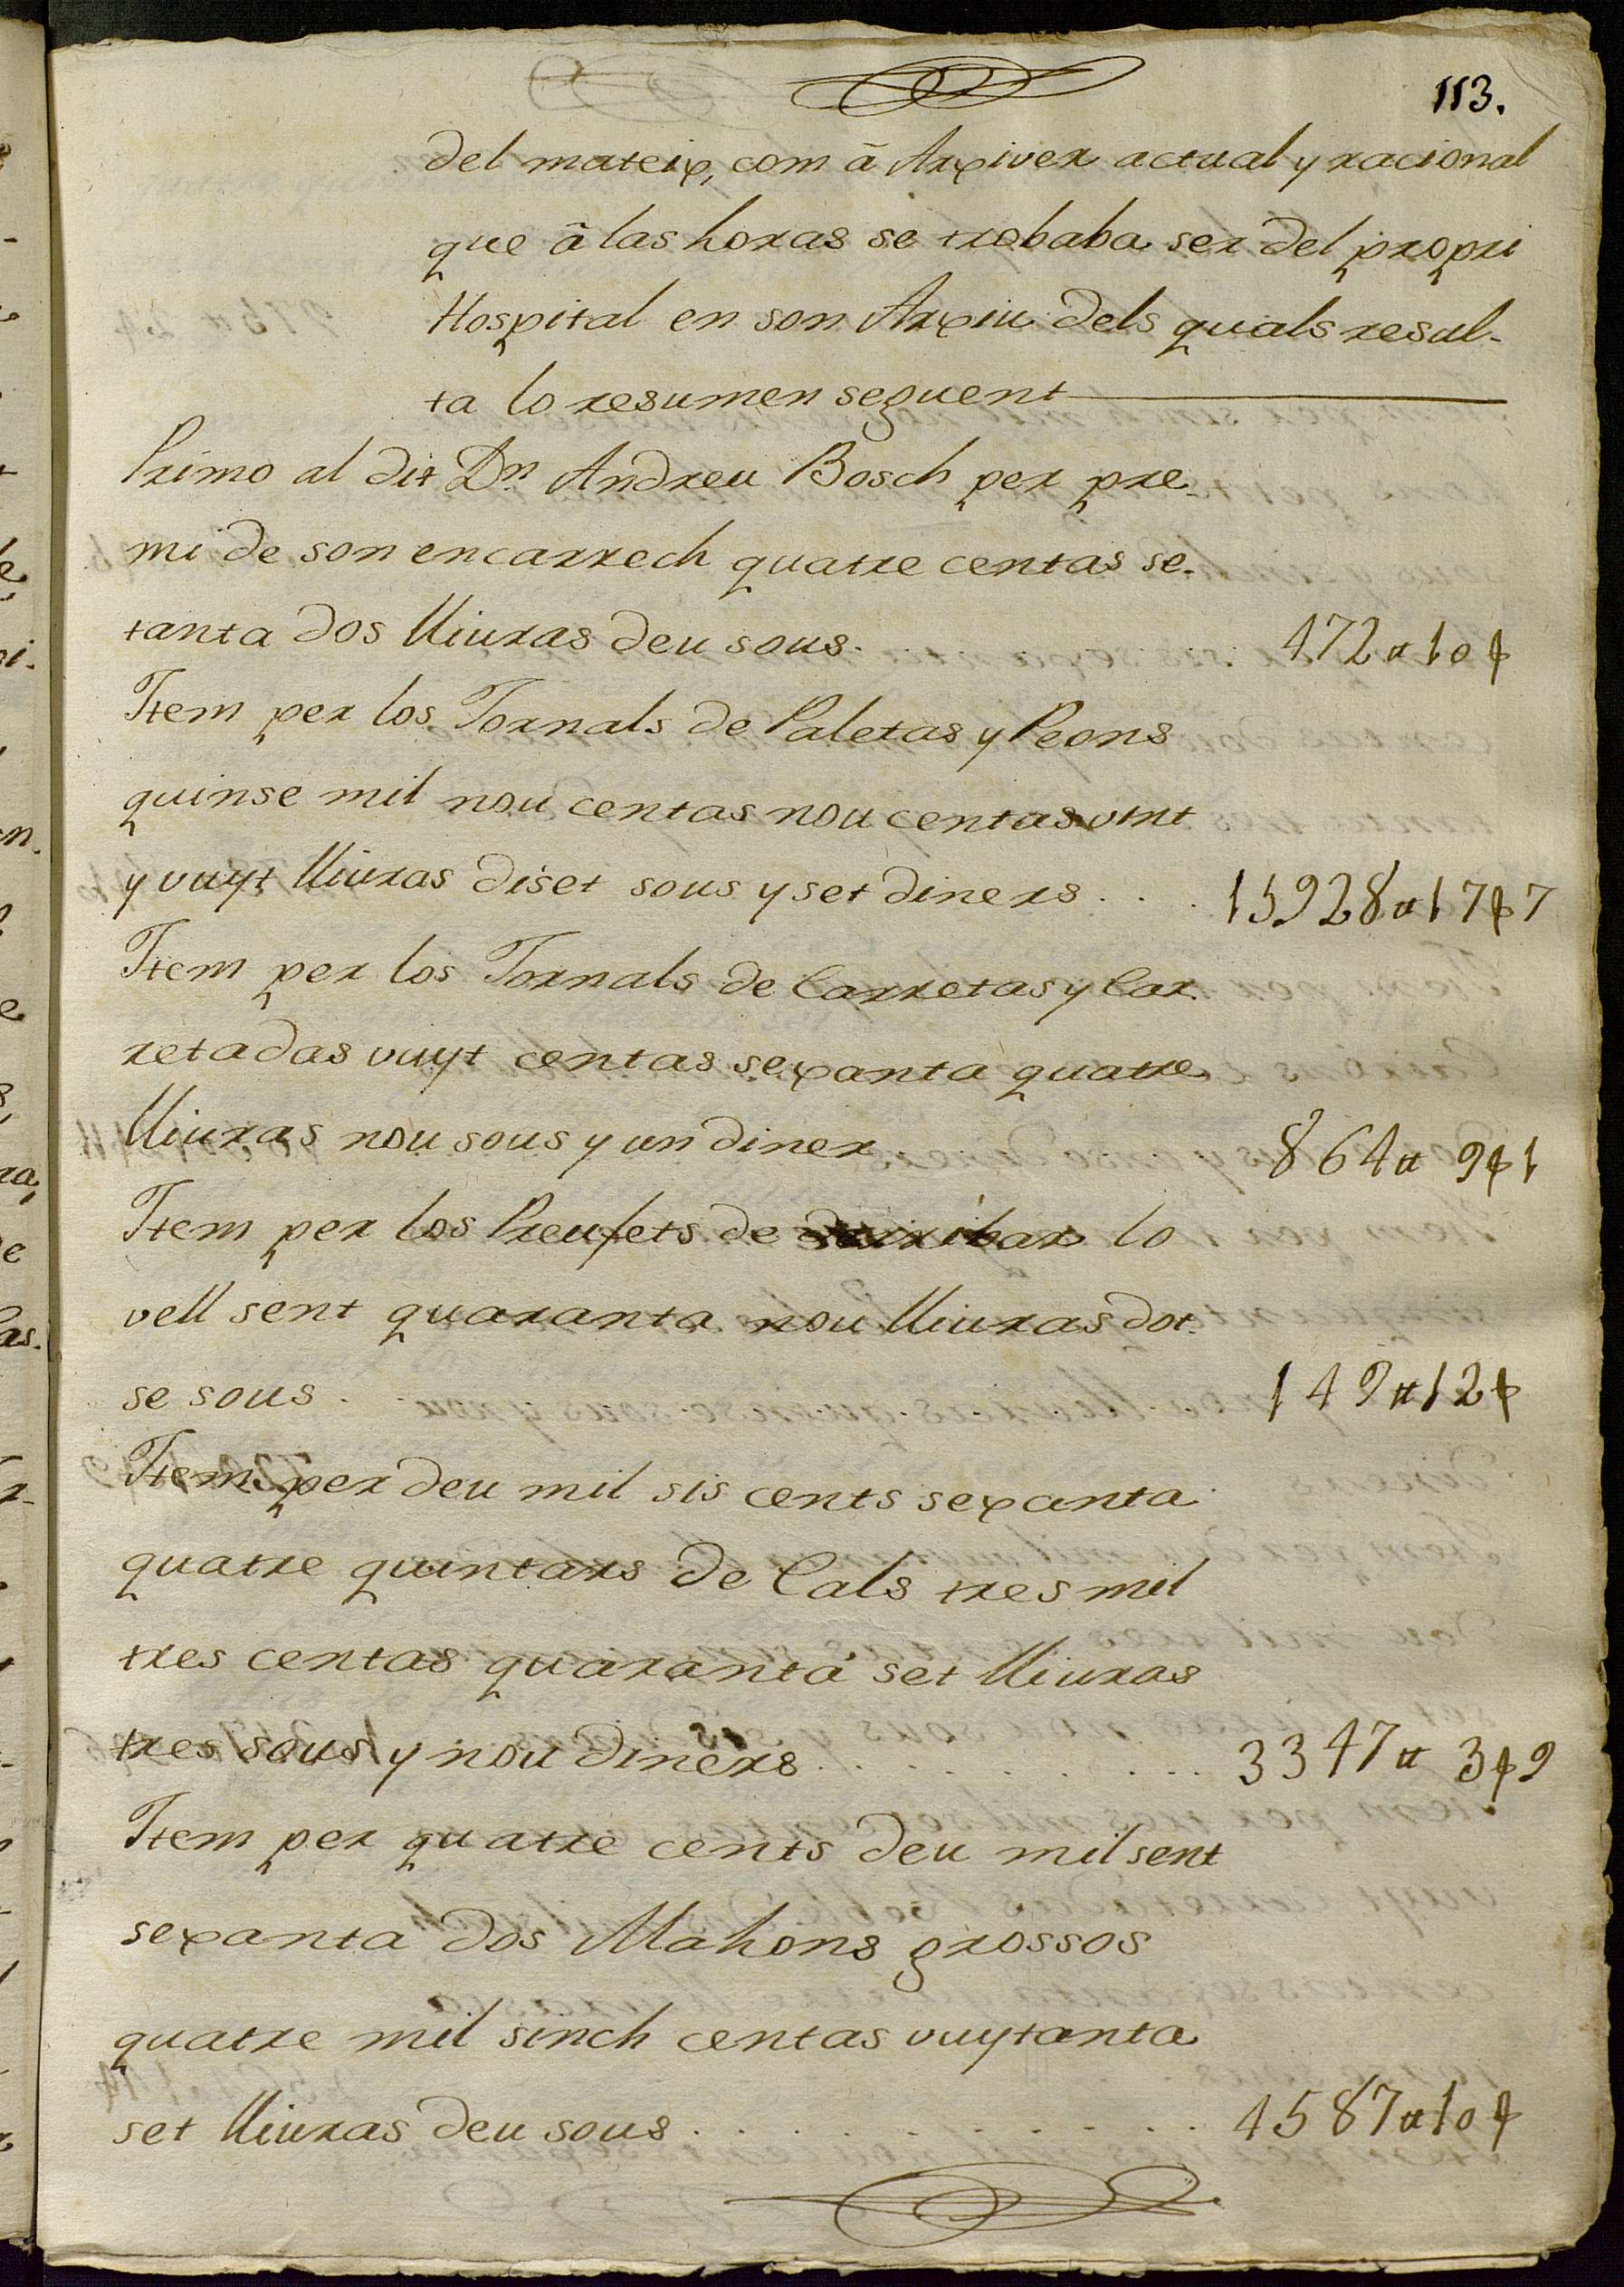 113.
del mateix, com â Arxiver actual y racional
que â las horas se trobaba ser del propri
Hospital en son Arxiu dels quals resul-
ta lo resumen seguent
Primo al dit Dn. Andreu Bosch per pre-
mi de son encarrech quatre centas se-
tanta dos lliuras deu sous. . . . . . 472 ⁂ 10 $
Item per los Jornals de Paletas y Peons
quinse mil nou centas nou centas vint
y vuyt lliuras diset sous y set diners . . . 15928 ⁂ 17 $ 7
Item per los Jornals de Carretas y Car-
retadas vuyt centas sexanta quatre
lliuras nou sous y un diner 864 ⁂ 9 $ 1
Item per los Preufets de derribar lo
vell sent quaranta nou lliuras dot-
se sous . . 149 ⁂ 12 $
Item per deu mil sis cents sexanta
quatre quintars de Cals tres mil
tres centas quaranta set lliuras
tres sous y nou diners . . . . . . . . . 3347 ⁂ 3 $ 9
Item per quatre cents deu mil sent
sexanta dos Mahons grossos
quatre mil sinch centas vuytanta
set lliuras deu sous . . . . . . . . . . 4587 ⁂ 10 $